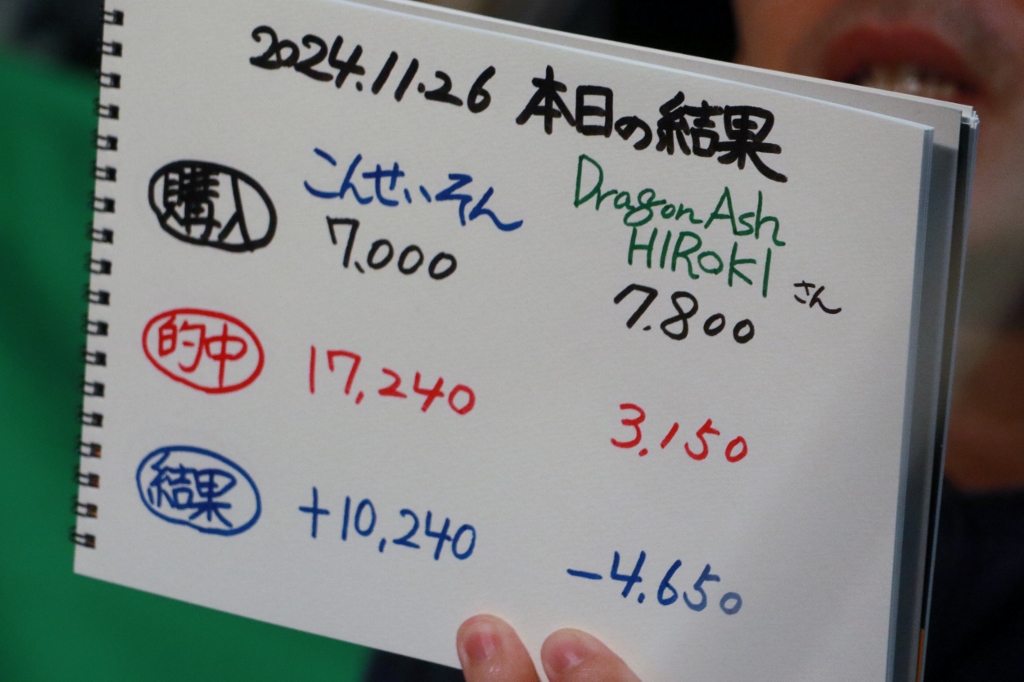 2024.11.26 本日の結果
購入 こんせいそん DragonAsh
HIROKI さん
7.000 7.800
的中 17,240 3.150
結果 +10,240 -4.650